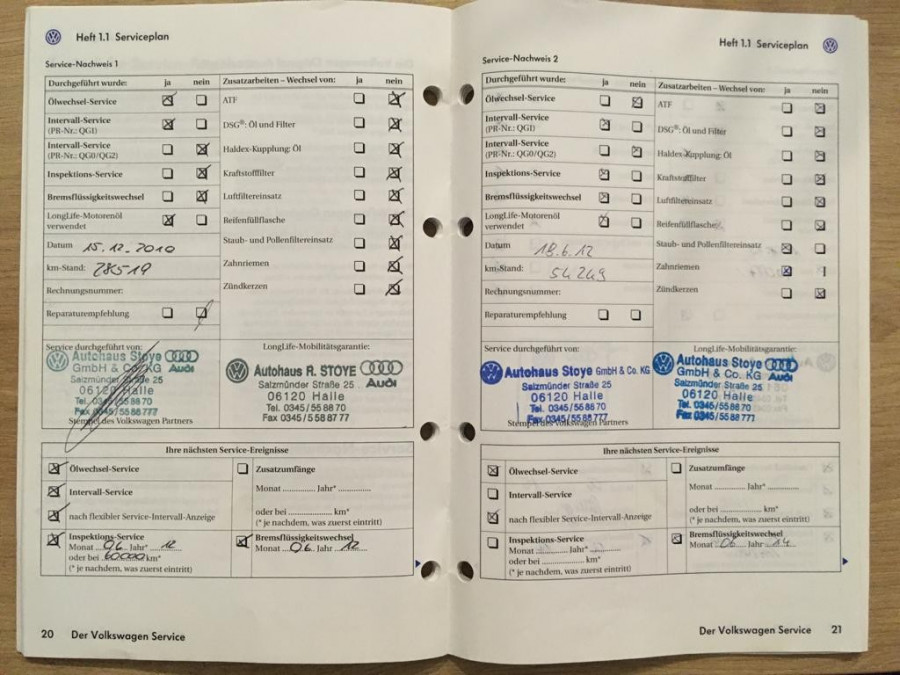 Heft 1.1 Serviceplan
Service-Nachweis 1
Durchgeführt wurde: ja nein Zusatzarbeiten – Wechsel von: ja nein
Ölwechsel-Service ATF
Intervall-Service
(PR-Nr.: QG1) DSG®: Öl und Filter
Intervall-Service
(PR-Nr.: QG0/QG2) Haldex-Kupplung: Öl
Inspektions-Service Kraftstofffilter
Bremsflüssigkeitswechsel Luftfiltereinsatz
LongLife-Motorenöl
verwendet Reifenfüllflasche
Datum 15.12.2010 Staub- und Pollenfiltereinsatz
km-Stand: 28519 Zahnriemen
Rechnungsnummer: Zündkerzen
Reparaturempfehlung
Service durchgeführt von: LongLife-Mobilitätsgarantie:
Autohaus Stoye
GmbH & Co. KG Audi
Salzmünder Straße 25
06120 Halle
Tel. 0345/55 88 70
Fax 0345/55 88 777
Stempel des Volkswagen Partners
Autohaus R. STOYE
Salzmünder Straße 25 Audi
06120 Halle
Tel. 0345/55 88 70
Fax 0345/55 88 777
Ihre nächsten Service-Ereignisse
Ölwechsel-Service Zusatzumfänge
Intervall-Service Monat .............. Jahr* ..............
nach flexibler Service-Intervall-Anzeige oder bei ........................ km*
(* je nachdem, was zuerst eintritt)
Inspektions-Service Bremsflüssigkeitswechsel
Monat 06 Jahr* 12 Monat 06 Jahr 12
oder bei 60000 km*
(* je nachdem, was zuerst eintritt)
20 Der Volkswagen Service
Heft 1.1 Serviceplan
Service-Nachweis 2
Durchgeführt wurde: ja nein Zusatzarbeiten – Wechsel von: ja nein
Ölwechsel-Service ATF
Intervall-Service
(PR-Nr.: QG1) DSG®: Öl und Filter
Intervall-Service
(PR-Nr.: QG0/QG2) Haldex-Kupplung: Öl
Inspektions-Service Kraftstofffilter
Bremsflüssigkeitswechsel Luftfiltereinsatz
LongLife-Motorenöl
verwendet Reifenfüllflasche
Datum 18.6.12 Staub- und Pollenfiltereinsatz
km-Stand: 54249 Zahnriemen
Rechnungsnummer: Zündkerzen
Reparaturempfehlung
Service durchgeführt von: LongLife-Mobilitätsgarantie:
Autohaus Stoye GmbH & Co. KG
Salzmünder Straße 25
06120 Halle
Tel. 0345/55 88 70
Fax 0345/55 88 777
Stempel des Volkswagen Partners
Autohaus Stoye
GmbH & Co. KG Audi
Salzmünder Straße 25
06120 Halle
Tel. 0345/55 88 70
Fax 0345/55 88 777
Ihre nächsten Service-Ereignisse
Ölwechsel-Service Zusatzumfänge
Intervall-Service Monat .............. Jahr* ..............
nach flexibler Service-Intervall-Anzeige oder bei ........................ km*
(* je nachdem, was zuerst eintritt)
Inspektions-Service Bremsflüssigkeitswechsel
Monat .............. Jahr* .............. Monat 06 Jahr 14
oder bei ........................ km*
(* je nachdem, was zuerst eintritt)
Der Volkswagen Service 21